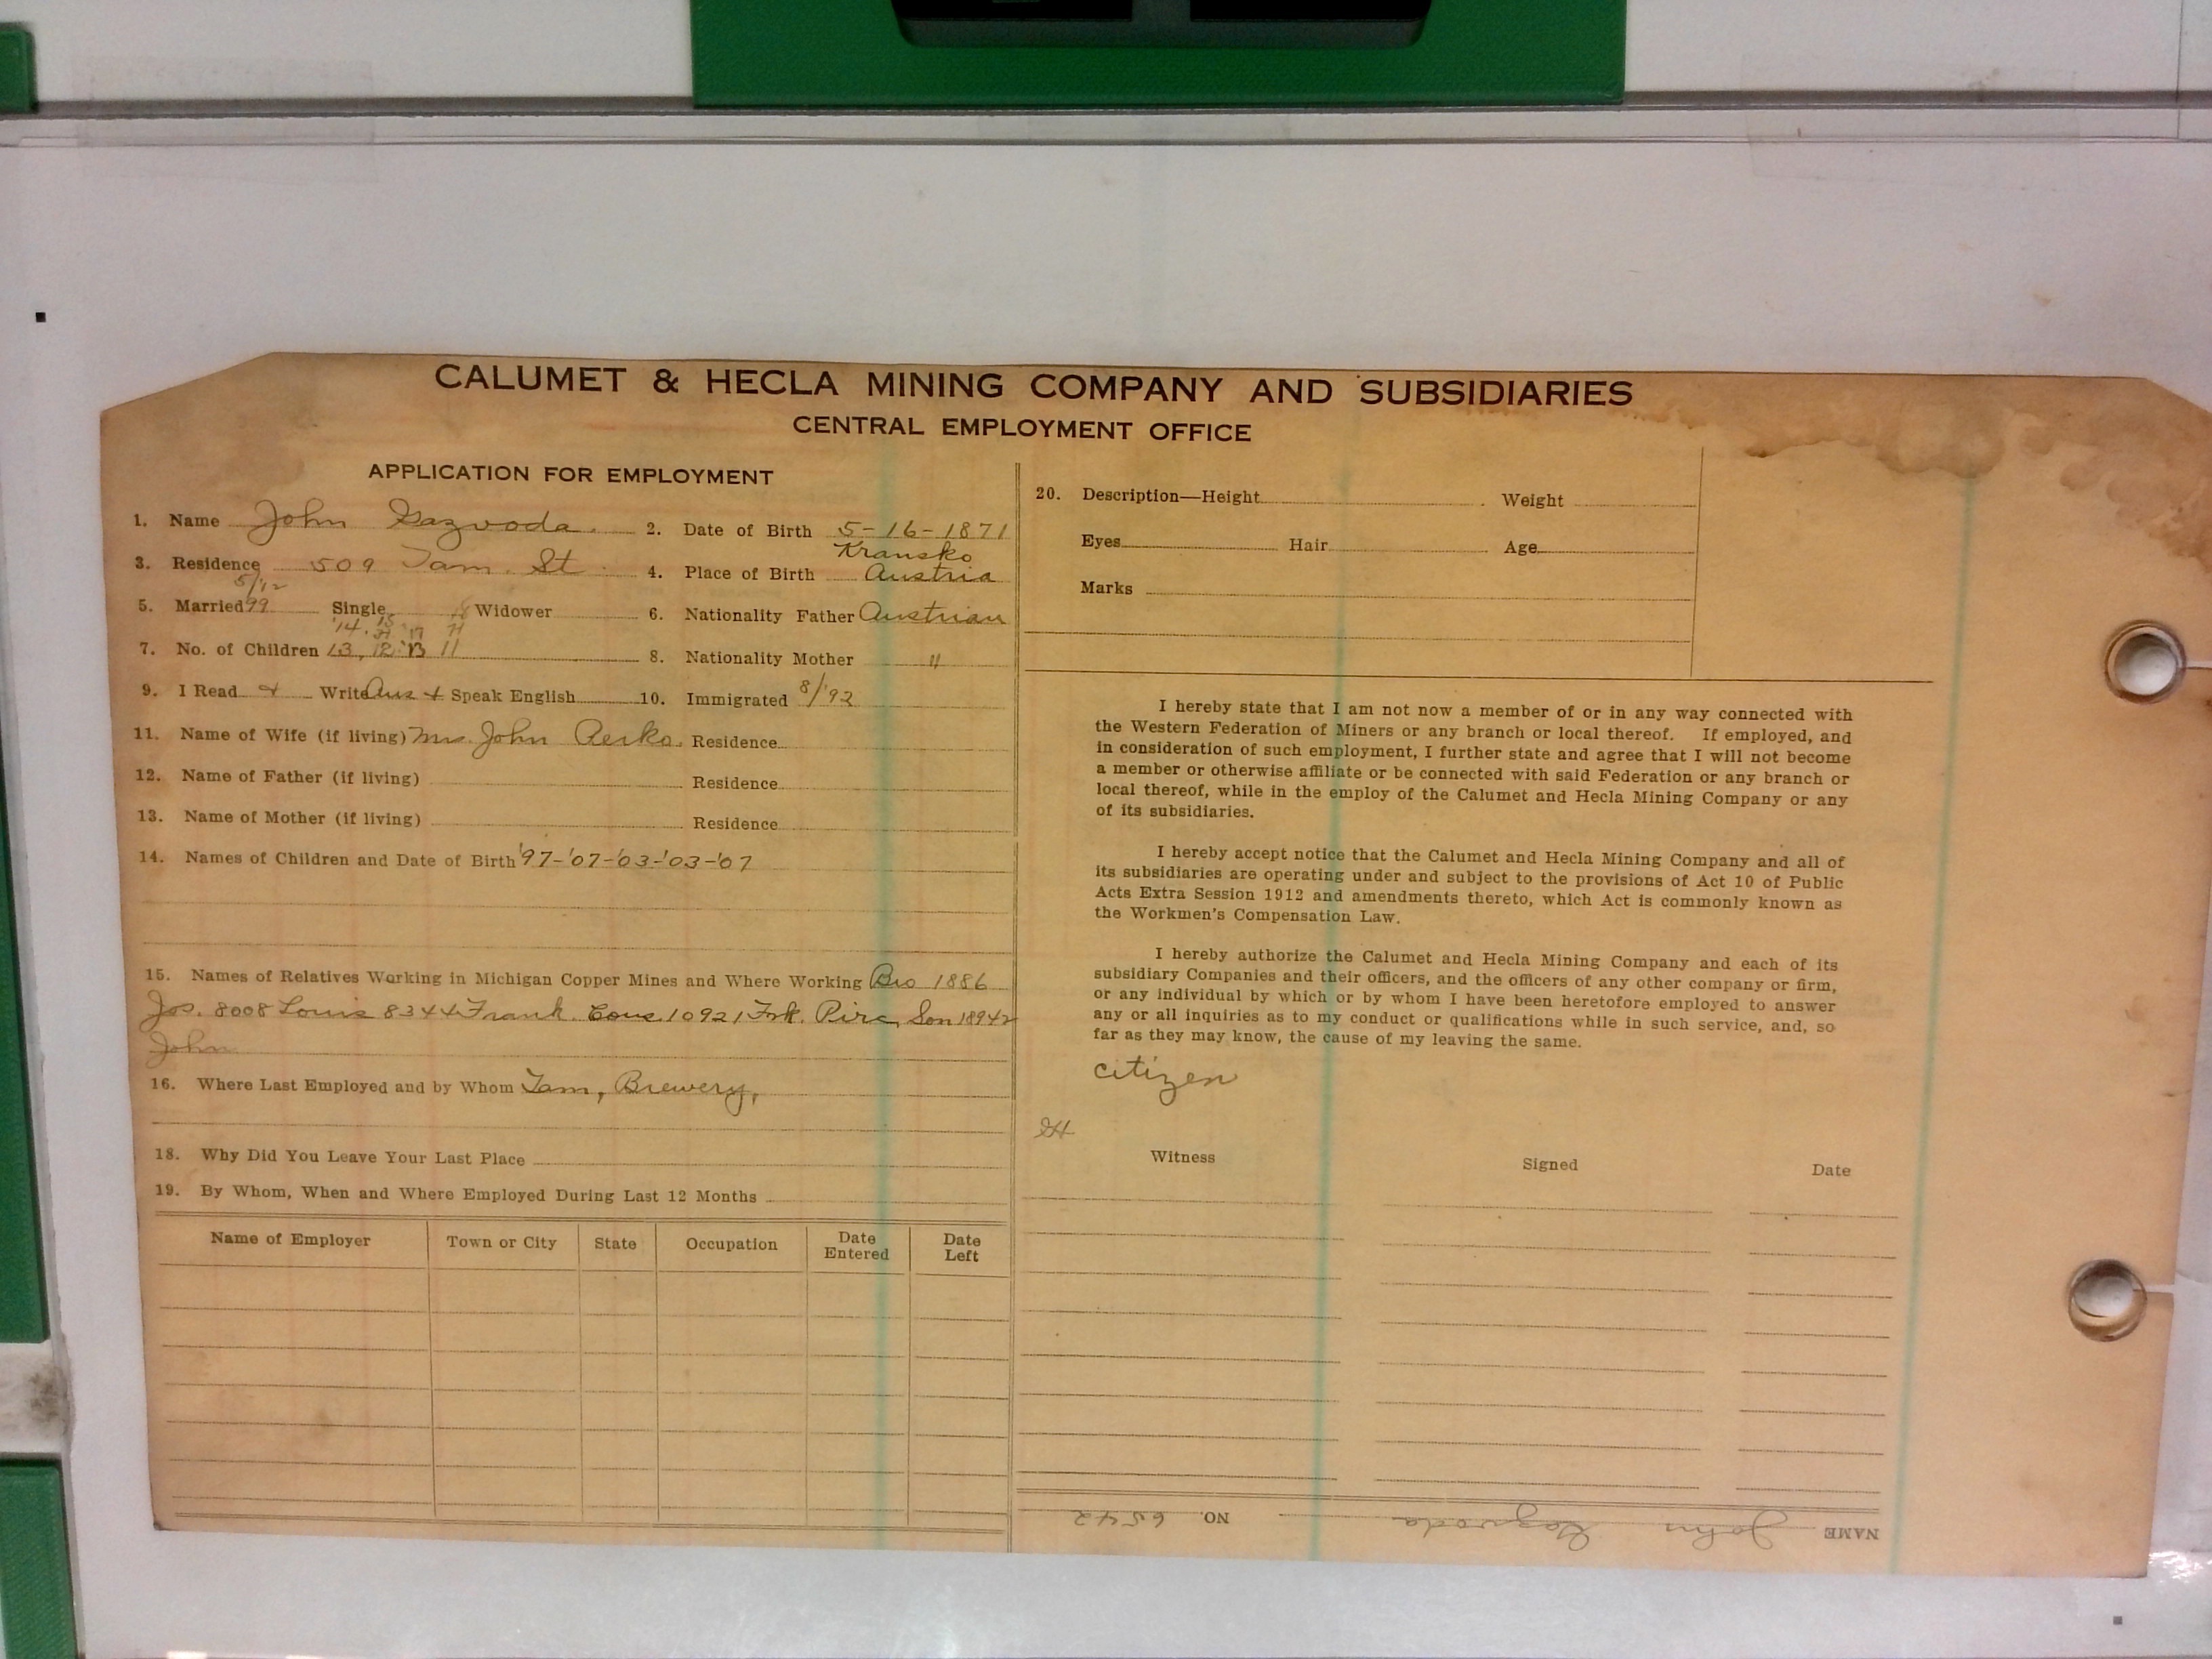 CALUMET & HECLA MINING COMPANY AND SUBSIDIARIES
CENTRAL EMPLOYMENT OFFICE
APPLICATION FOR EMPLOYMENT
1. Name John Gazvoda. 2. Date of Birth 5-16-1871
3. Residence 509 Tam. St. 4. Place of Birth Kransko Austria
5. Married 5/12 99 Single Widower 6. Nationality Father Austrian
'14. 15 '17
7. No. of Children 13, 12 13 11 8. Nationality Mother "
9. I Read & Write Aus & Speak English 10. Immigrated 8/'92
11. Name of Wife (if living) Mrs. John Residence
12. Name of Father (if living) Residence
13. Name of Mother (if living) Residence
14. Names of Children and Date of Birth '97-'07-'03-'03-'07
15. Names of Relatives Working in Michigan Copper Mines and Where Working Bro 1886
Jos. 8008 Louis 8344 Frank. Cous 10921 Frk. Pirc, Son 18942
John
16. Where Last Employed and by Whom Tam, Brewery,
18. Why Did You Leave Your Last Place
19. By Whom, When and Where Employed During Last 12 Months
Name of Employer Town or City State Occupation Date Entered Date Left
20. Description—Height Weight
Eyes Hair Age
Marks
I hereby state that I am not now a member of or in any way connected with
the Western Federation of Miners or any branch or local thereof. If employed, and
in consideration of such employment, I further state and agree that I will not become
a member or otherwise affiliate or be connected with said Federation or any branch or
local thereof, while in the employ of the Calumet and Hecla Mining Company or any
of its subsidiaries.
I hereby accept notice that the Calumet and Hecla Mining Company and all of
its subsidiaries are operating under and subject to the provisions of Act 10 of Public
Acts Extra Session 1912 and amendments thereto, which Act is commonly known as
the Workmen's Compensation Law.
I hereby authorize the Calumet and Hecla Mining Company and each of its
subsidiary Companies and their officers, and the officers of any other company or firm,
or any individual by which or by whom I have been heretofore employed to answer
any or all inquiries as to my conduct or qualifications while in such service, and, so
far as they may know, the cause of my leaving the same.
citizen
Witness Signed Date
NAME John Gazvoda NO. 6542